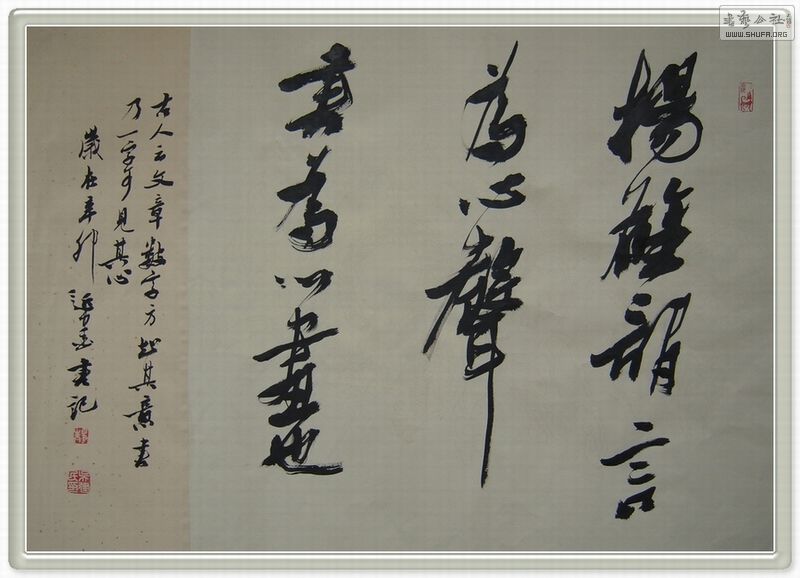 書藝公社
WWW.SHUFA.ORG
揚雄謂言
為心聲
書為心畫也
古人云文章數字方知其意書
乃一字可見其心
歲在辛卯書記